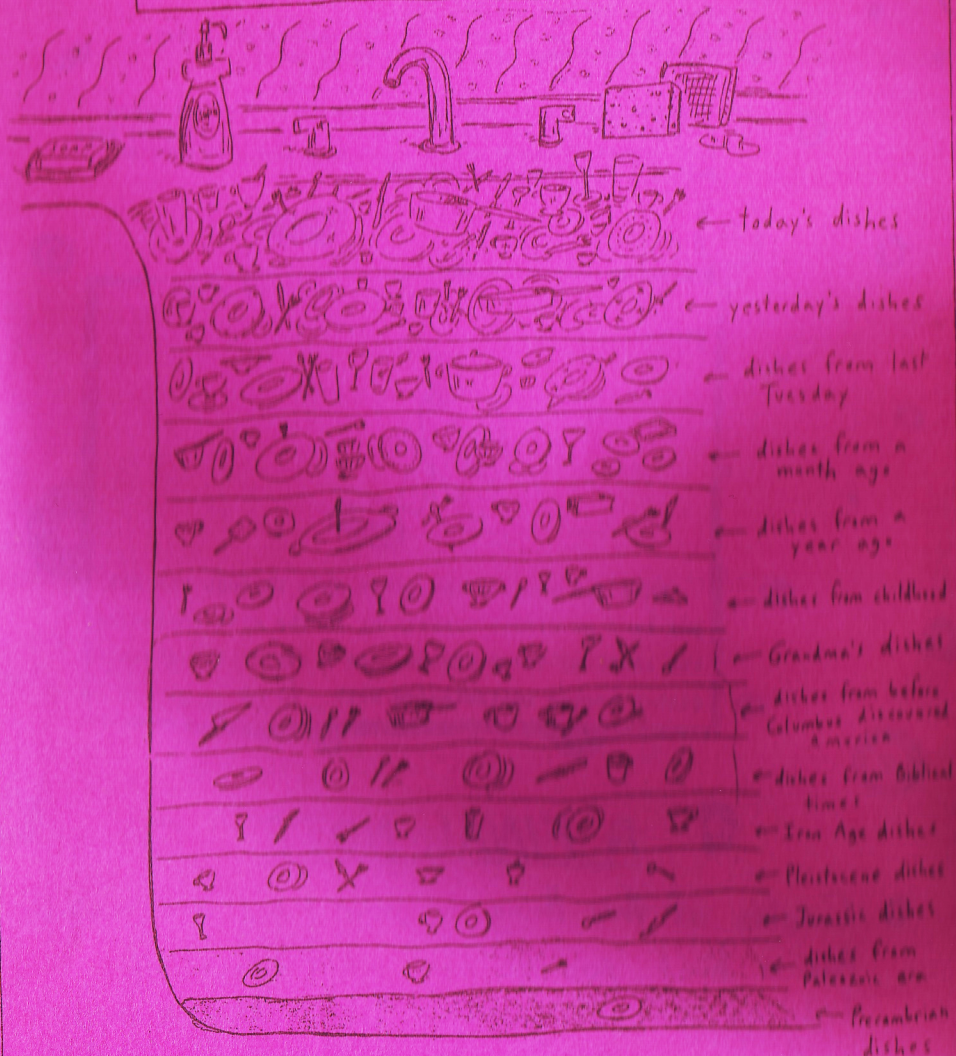 SOAP
today's dishes
yesterday's dishes
dishes from last
Tuesday
dishes from a
month ago
dishes from a
year ago
dishes from childhood
Grandma's dishes
dishes from before
Columbus discovered
America
dishes from Biblical
times
Iron Age dishes
Pleistocene dishes
Jurassic dishes
dishes from
Paleozoic era
Precambrian
dishes